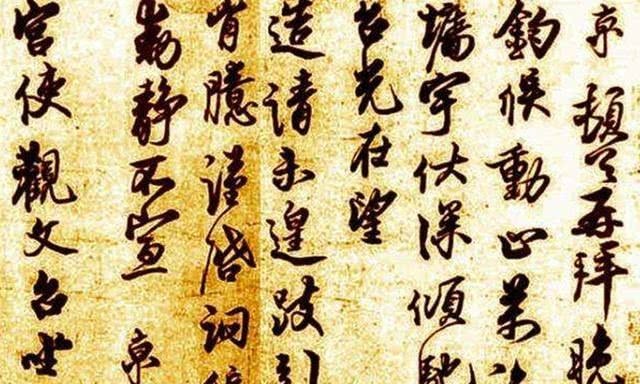 京頓首再拜晚
鈞候動止萬
墉宇伏深傾馳
台光在望
造請未遑跂引
胷臆謹啓詢
動靜不宣 京
宮使觀文台坐